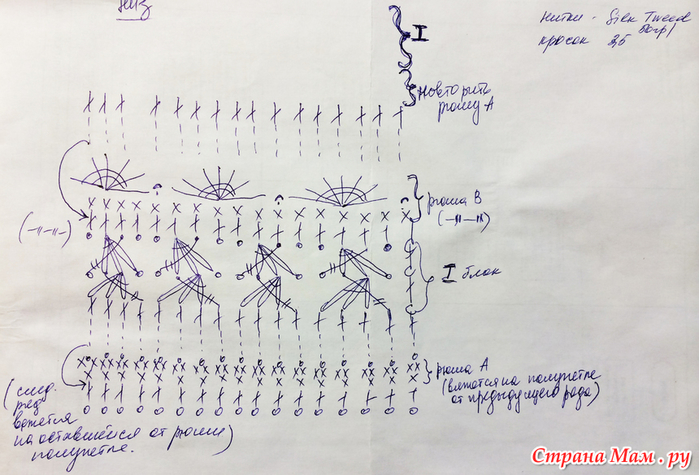 низ
нитки - Silk Tweed
50гр/
крючок 3,5
I
повторить
рюшу A
рюша B
(-"-"-)
(-"-"-)
I блок
рюша A
(вяжется на полупетле
от предыдущего ряда)
(след.
ряд
вяжется
на оставшейся от рюши
полупетле.)
Страна Мам.ру